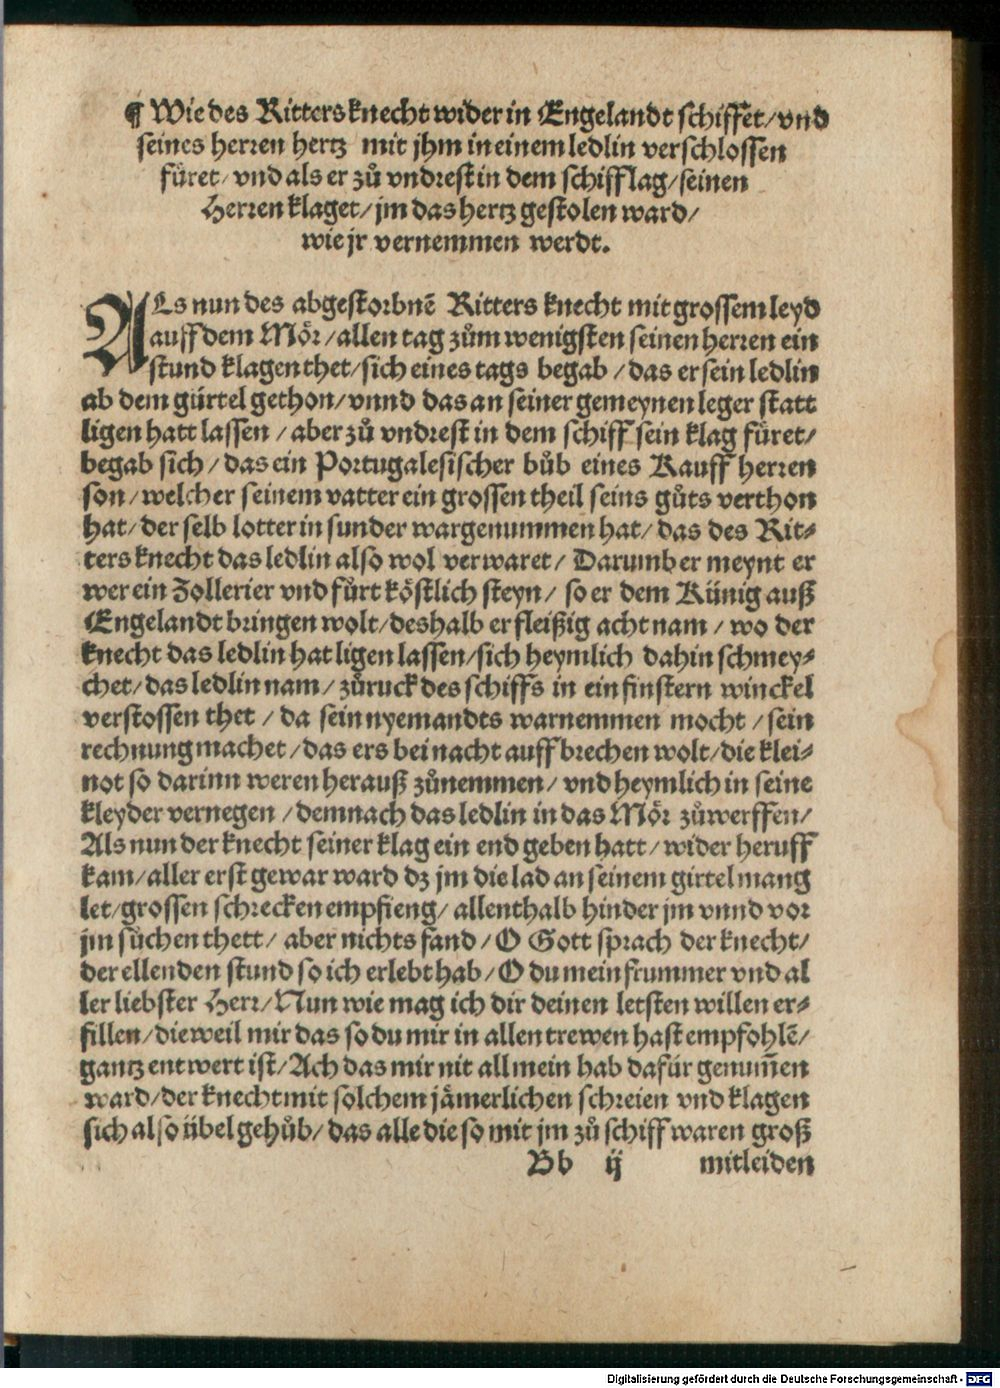 ¶ Wie des Ritters knecht wider in Engelandt schiffet/ vnd
seines herren hertz mit jhm in einem ledlin verschlossen
fůret/ vnd als er zů vndrest in dem schiff lag/ seinen
Herren klaget/ jm das hertz gestolen ward/
wie jr vernemmen werdt.
ALs nun des abgestorbnẽ Ritters knecht mit grossem leyd
auff dem Mör/ allen tag zům wenigsten seinen herren ein
stund klagen thet/ sich eines tags begab/ das er sein ledlin
ab dem gürtel gethon/ vnnd das an seiner gemeynen leger statt
ligen hatt lassen/ aber zů vndrest in dem schiff sein klag füret/
begab sich/ das ein Portugalesischer bůb eines Kauff herren
son/ welcher seinem vatter ein grossen theil seins gůts verthon
hat/ der selb lotter in sunder wargenummen hat/ das des Rit⸗
ters knecht das ledlin also wol verwaret/ Darumb er meynt er
wer ein Jollerier vnd fürt köstlich steyn/ so er dem Künig auß
Engelandt bringen wolt/ deshalb er fleißig acht nam/ wo der
knecht das ledlin hat ligen lassen/ sich heymlich dahin schmey⸗
chet/ das ledlin nam/ zůruck des schiffs in ein finstern winckel
verstossen thet/ da sein nyemandts warnemmen mocht/ sein
rechnung machet/ das ers bei nacht auff brechen wolt/ die klei⸗
not so darinn weren herauß zůnemmen/ vnd heymlich in seine
kleyder vernegen/ demnach das ledlin in das Mör zůwerffen/
Als nun der knecht seiner klag ein end geben hatt/ wider heruff
kam/ aller erst gewar ward dz jm die lad an seinem girtel mang
let/ grossen schrecken empfieng/ allenthalb hinder jm vnnd vor
jm sůchen thett/ aber nichts fand/ O Gott sprach der knecht/
der ellenden stund so ich erlebt hab/ O du mein frummer vnd al
ler liebster Herr/ Nun wie mag ich dir deinen letsten willen er⸗
fillen/ dieweil mir das so du mir in allen trewen hast empfohlẽ/
gantz entwert ist/ Ach das mir nit all mein hab dafür genum̃en
ward/ der knecht mit solchem jämerlichen schreien vnd klagen
sich also übel gehůb/ das alle die so mit jm zů schiff waren groß
Bb ij mitleiden
Digitalisierung gefördert durch die Deutsche Forschungsgemeinschaft - DFG